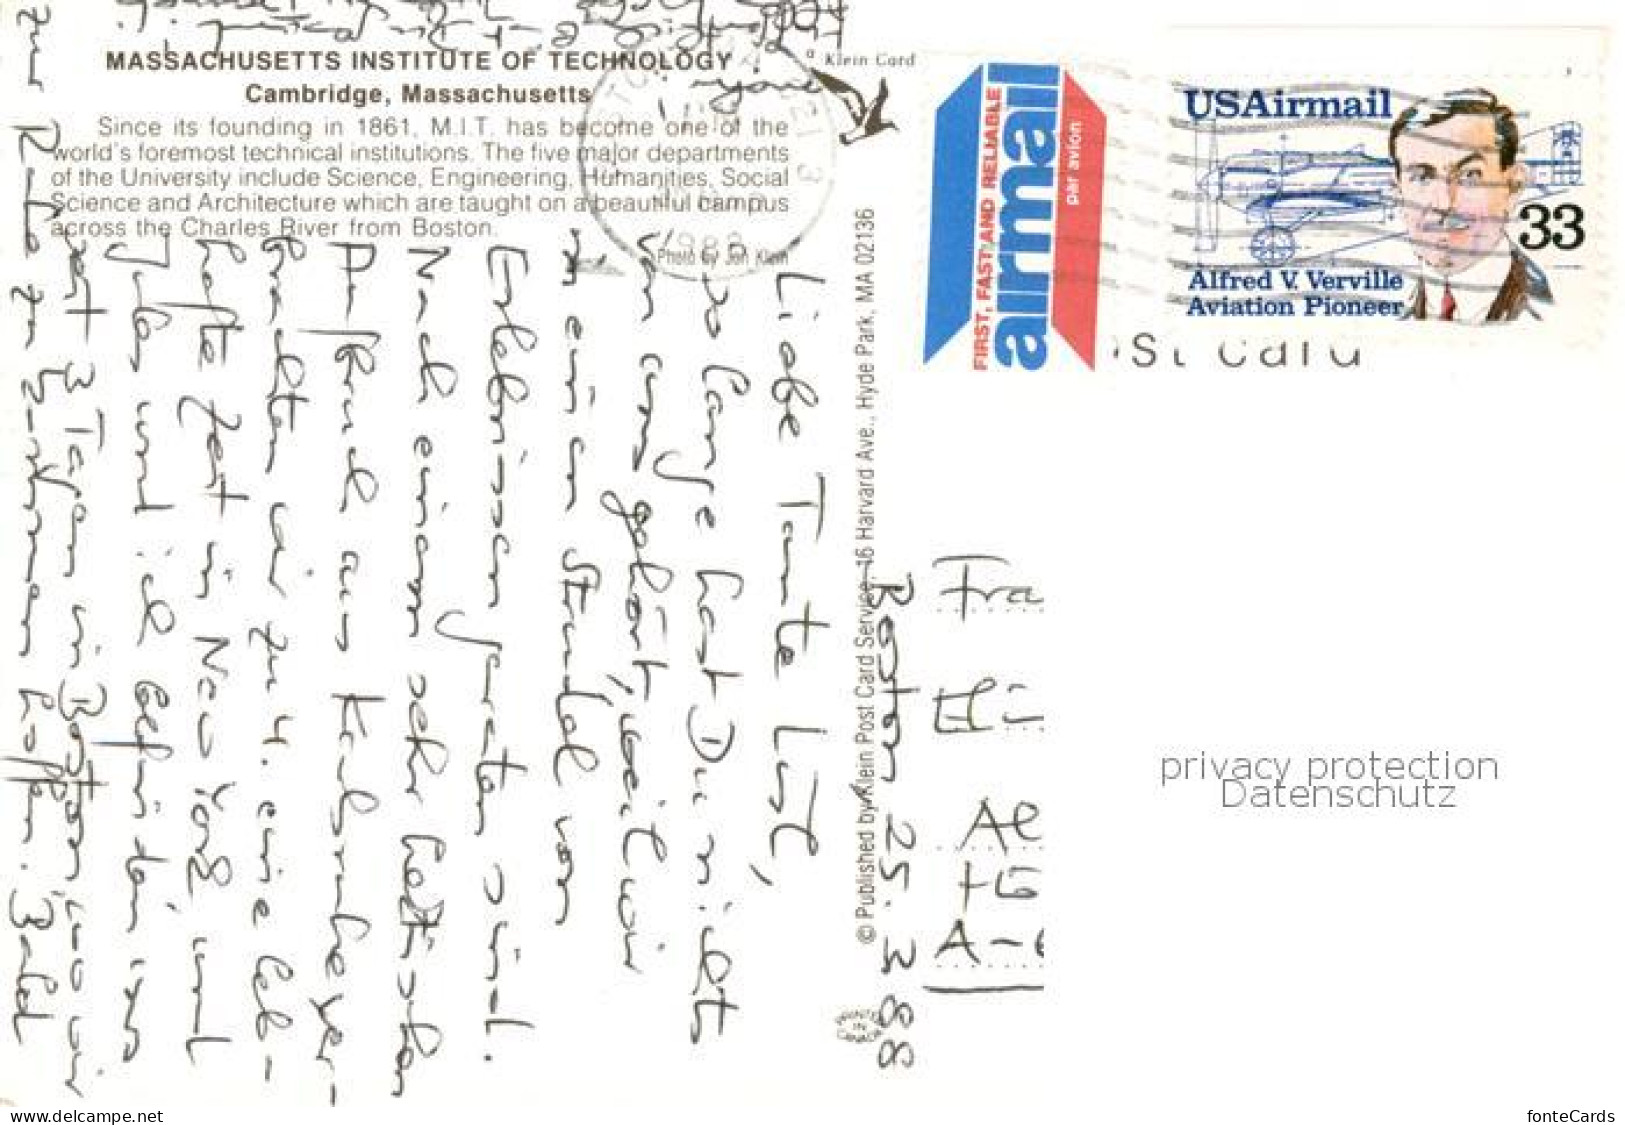 MASSACHUSETTS INSTITUTE OF TECHNOLOGY
Cambridge, Massachusetts
Since its founding in 1861, M.I.T. has become one of the
world's foremost technical institutions. The five major departments
of the University include Science, Engineering, Humanities, Social
Science and Architecture which are taught on a beautiful campus
across the Charles River from Boston.
Photo by Jon Klein
a Klein Card
© Published by Klein Post Card Service, 46 Harvard Ave., Hyde Park, MA 02136
PRINTED
IN
CANADA
FIRST, FAST AND RELIABLE
airmail
par avion
USAirmail
33
Alfred V. Verville
Aviation Pioneer
ost Card
1988
Boston 25. 3 88
Liebe Tante List,
so lange hast Du nichts
von uns gehört, weil wir
in einem Strudel von
Erlebnissen geraten sind.
Nach einem sehr hektischen
Aufbruch aus
brachten wir zu 4. eine leb-
hafte Zeit in New York und
Jules und ich befinden uns
seit 3 Tagen in Boston, wo wir
zur Ruhe zu kommen hoffen. Bald
Fra
Al
+G
A-
privacy protection
Datenschutz
www.delcampe.net
fonteCards